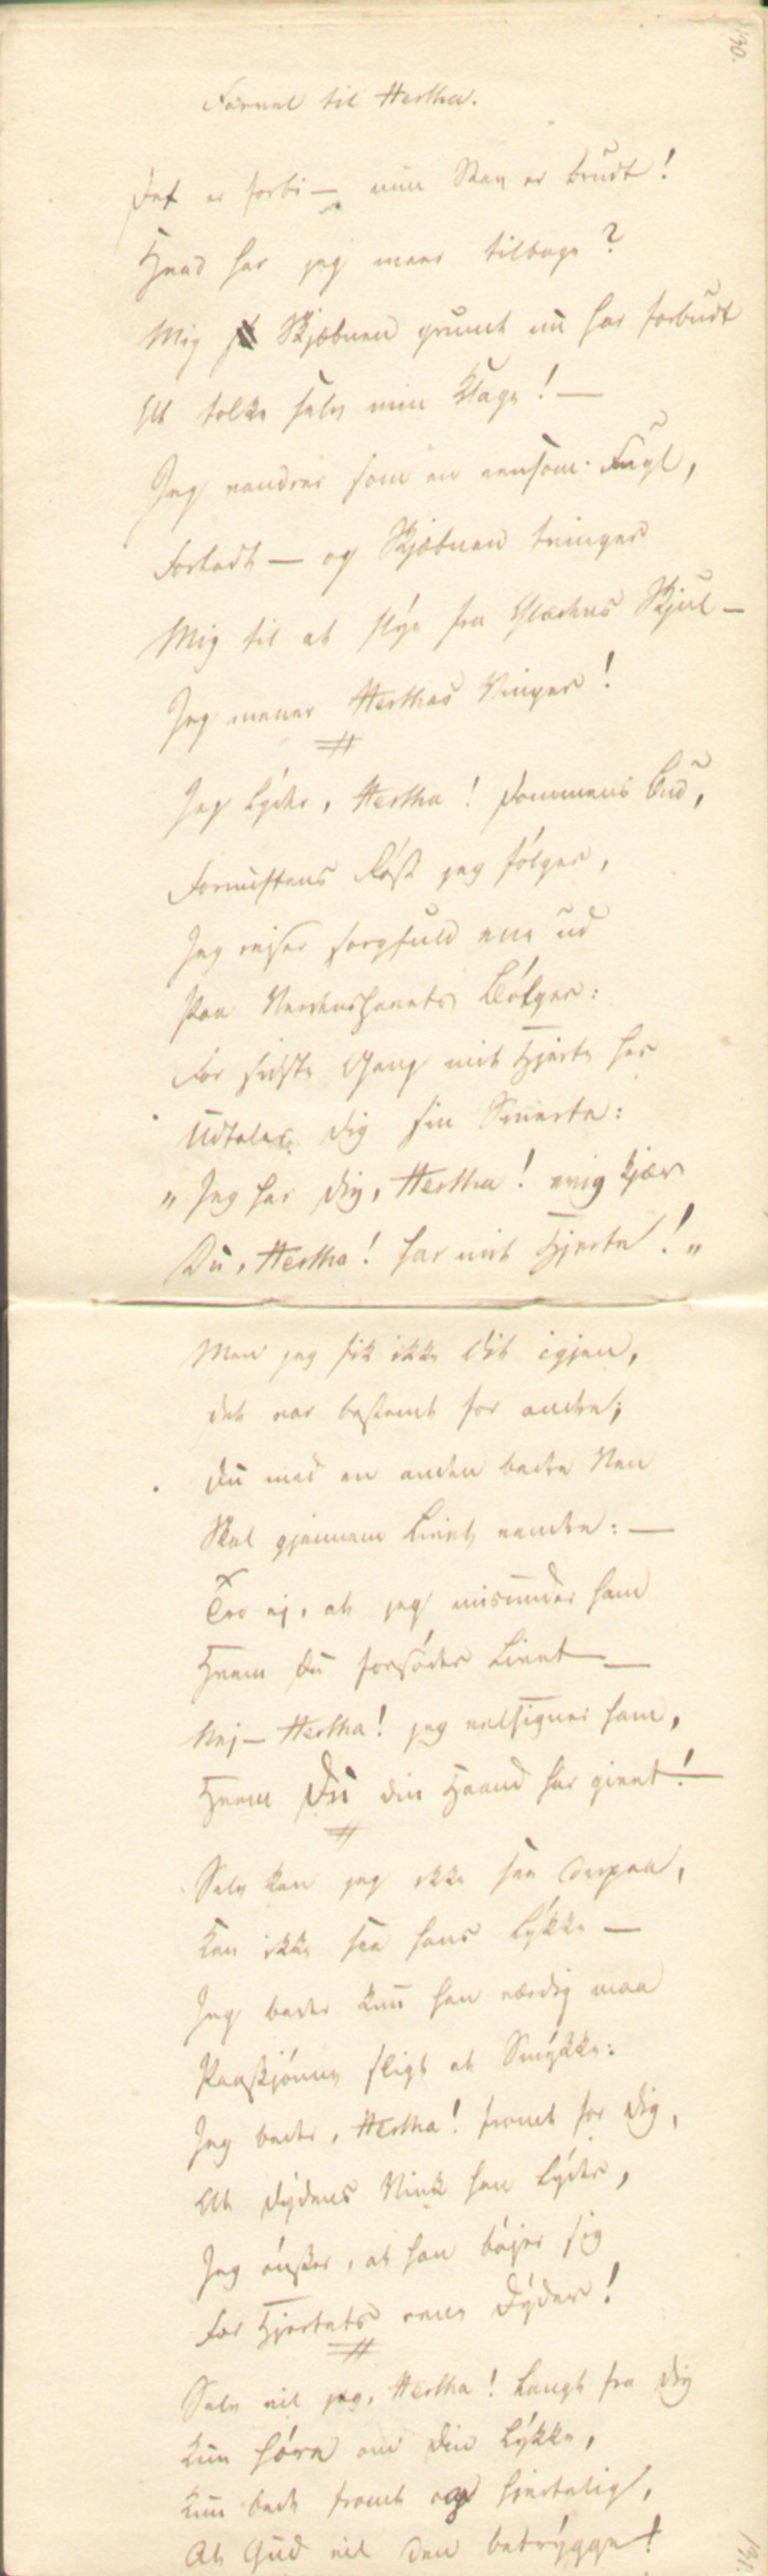 130.
Farvel til Hertha.
Det er forbi — min Stav er brudt!
Hvad har jeg meer tilbage?
Mig Skjæbnen grumt nu har forbudt
At tolke selv min Klage! —
Jeg vandrer som en eensom Fugl,
Forladt — og Skjæbnen tvinger
Mig til at flye fra Glædens Skjul —
Jeg mener Herthas Vinger!
Jeg lyder, Hertha! Dommens Bud,
Fornuftens Røst jeg følger,
Jeg rejser sorgfuld ene ud
Paa Verdenshavets Bølger:
For sidste Gang mit Hjerte her
Udtaler Dig sin Smerte:
"Jeg har Dig, Hertha! evig kjær
Du, Hertha! har mit Hjerte!"
Men jeg fik ikke Dit igjen,
Det var bestemt for andre;
Du med en anden bedre Ven
Skal gjennem Livet vandre: —
Tro ej, at jeg misunder ham
Hvem Du forsøder Livet —
Nej — Hertha! jeg velsigner ham,
Hvem Du din Haand har givet! —
Selv kan jeg ikke see derpaa,
Kan ikke see hans Lykke —
Jeg beder kun han værdig maa
Paaskjønne sligt et Smykke:
Jeg beder, Hertha! fromt for Dig,
At Dydens Vink han lyder,
Jeg ønsker, at han bøjer sig
For Hjertets rene Dyder!
Selv vil jeg, Hertha! langt fra Dig
Kun høre om Din Lykke,
Kun bede fromt og hjertelig,
At Gud vil den betrygge!
131